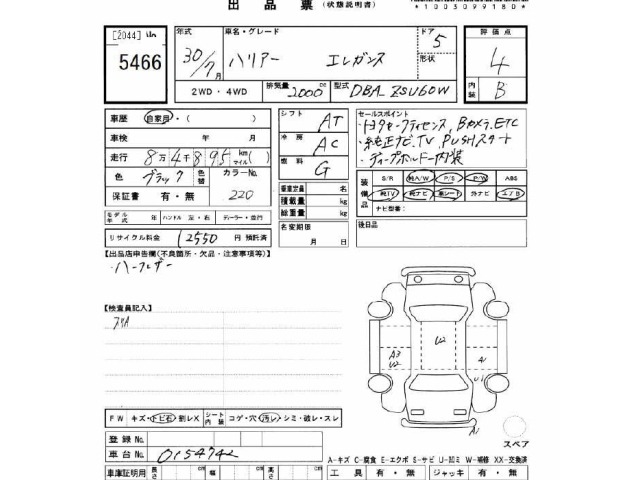 出品票(状態説明書)
*1003099180*
[2044] No
5466
年式
30/7月
車名・グレード
ハリアー エレガンス
ドア 5
形状
評価点
4
内装 B
2WD・4WD
排気量 2000 cc
型式 DBA-ZSU60W
車歴 自家用・( )
車検 年 月
走行 8万4千895 km(マイル)
色 ブラック 色替 カラーNo. 220
保証書 有・無
モデル年式 年 ハンドル 左・右 ディーラー・並行
リサイクル料金 12550 円 預託済
シフト AT
冷房 AC
燃料 G
乗車定員 名
積載量 kg
総重量 kg
名変期限
月 日
セールスポイント
・トヨタセーフティセンス, Bカメラ, ETC
・純正ナビ, TV, PUSHスタート
・ディープボルドー内装
装備品
S/R 純A/W P/S P/W ABS
純TV 純ナビ 革シート 外ナビ エアB
ナビ型番:
後日品
【出品店申告欄(不良箇所・欠品・注意事項等)】
・ハーフレザー
【検査員記入】
スリA
A3
U2
U2
A1
U1
A1
スペア
FW キズ・トビ石・割レX シート内装 コゲ・穴・汚レ・シミ・破レ・スレ
登録No.
車台No. 0154742
A-キズ C-腐食 E-エクボ S-サビ U-凹ミ W-補修 XX-交換済
車庫証明用 長さ cm 幅 cm 高さ cm
工具 有・無 ジャッキ 有・無